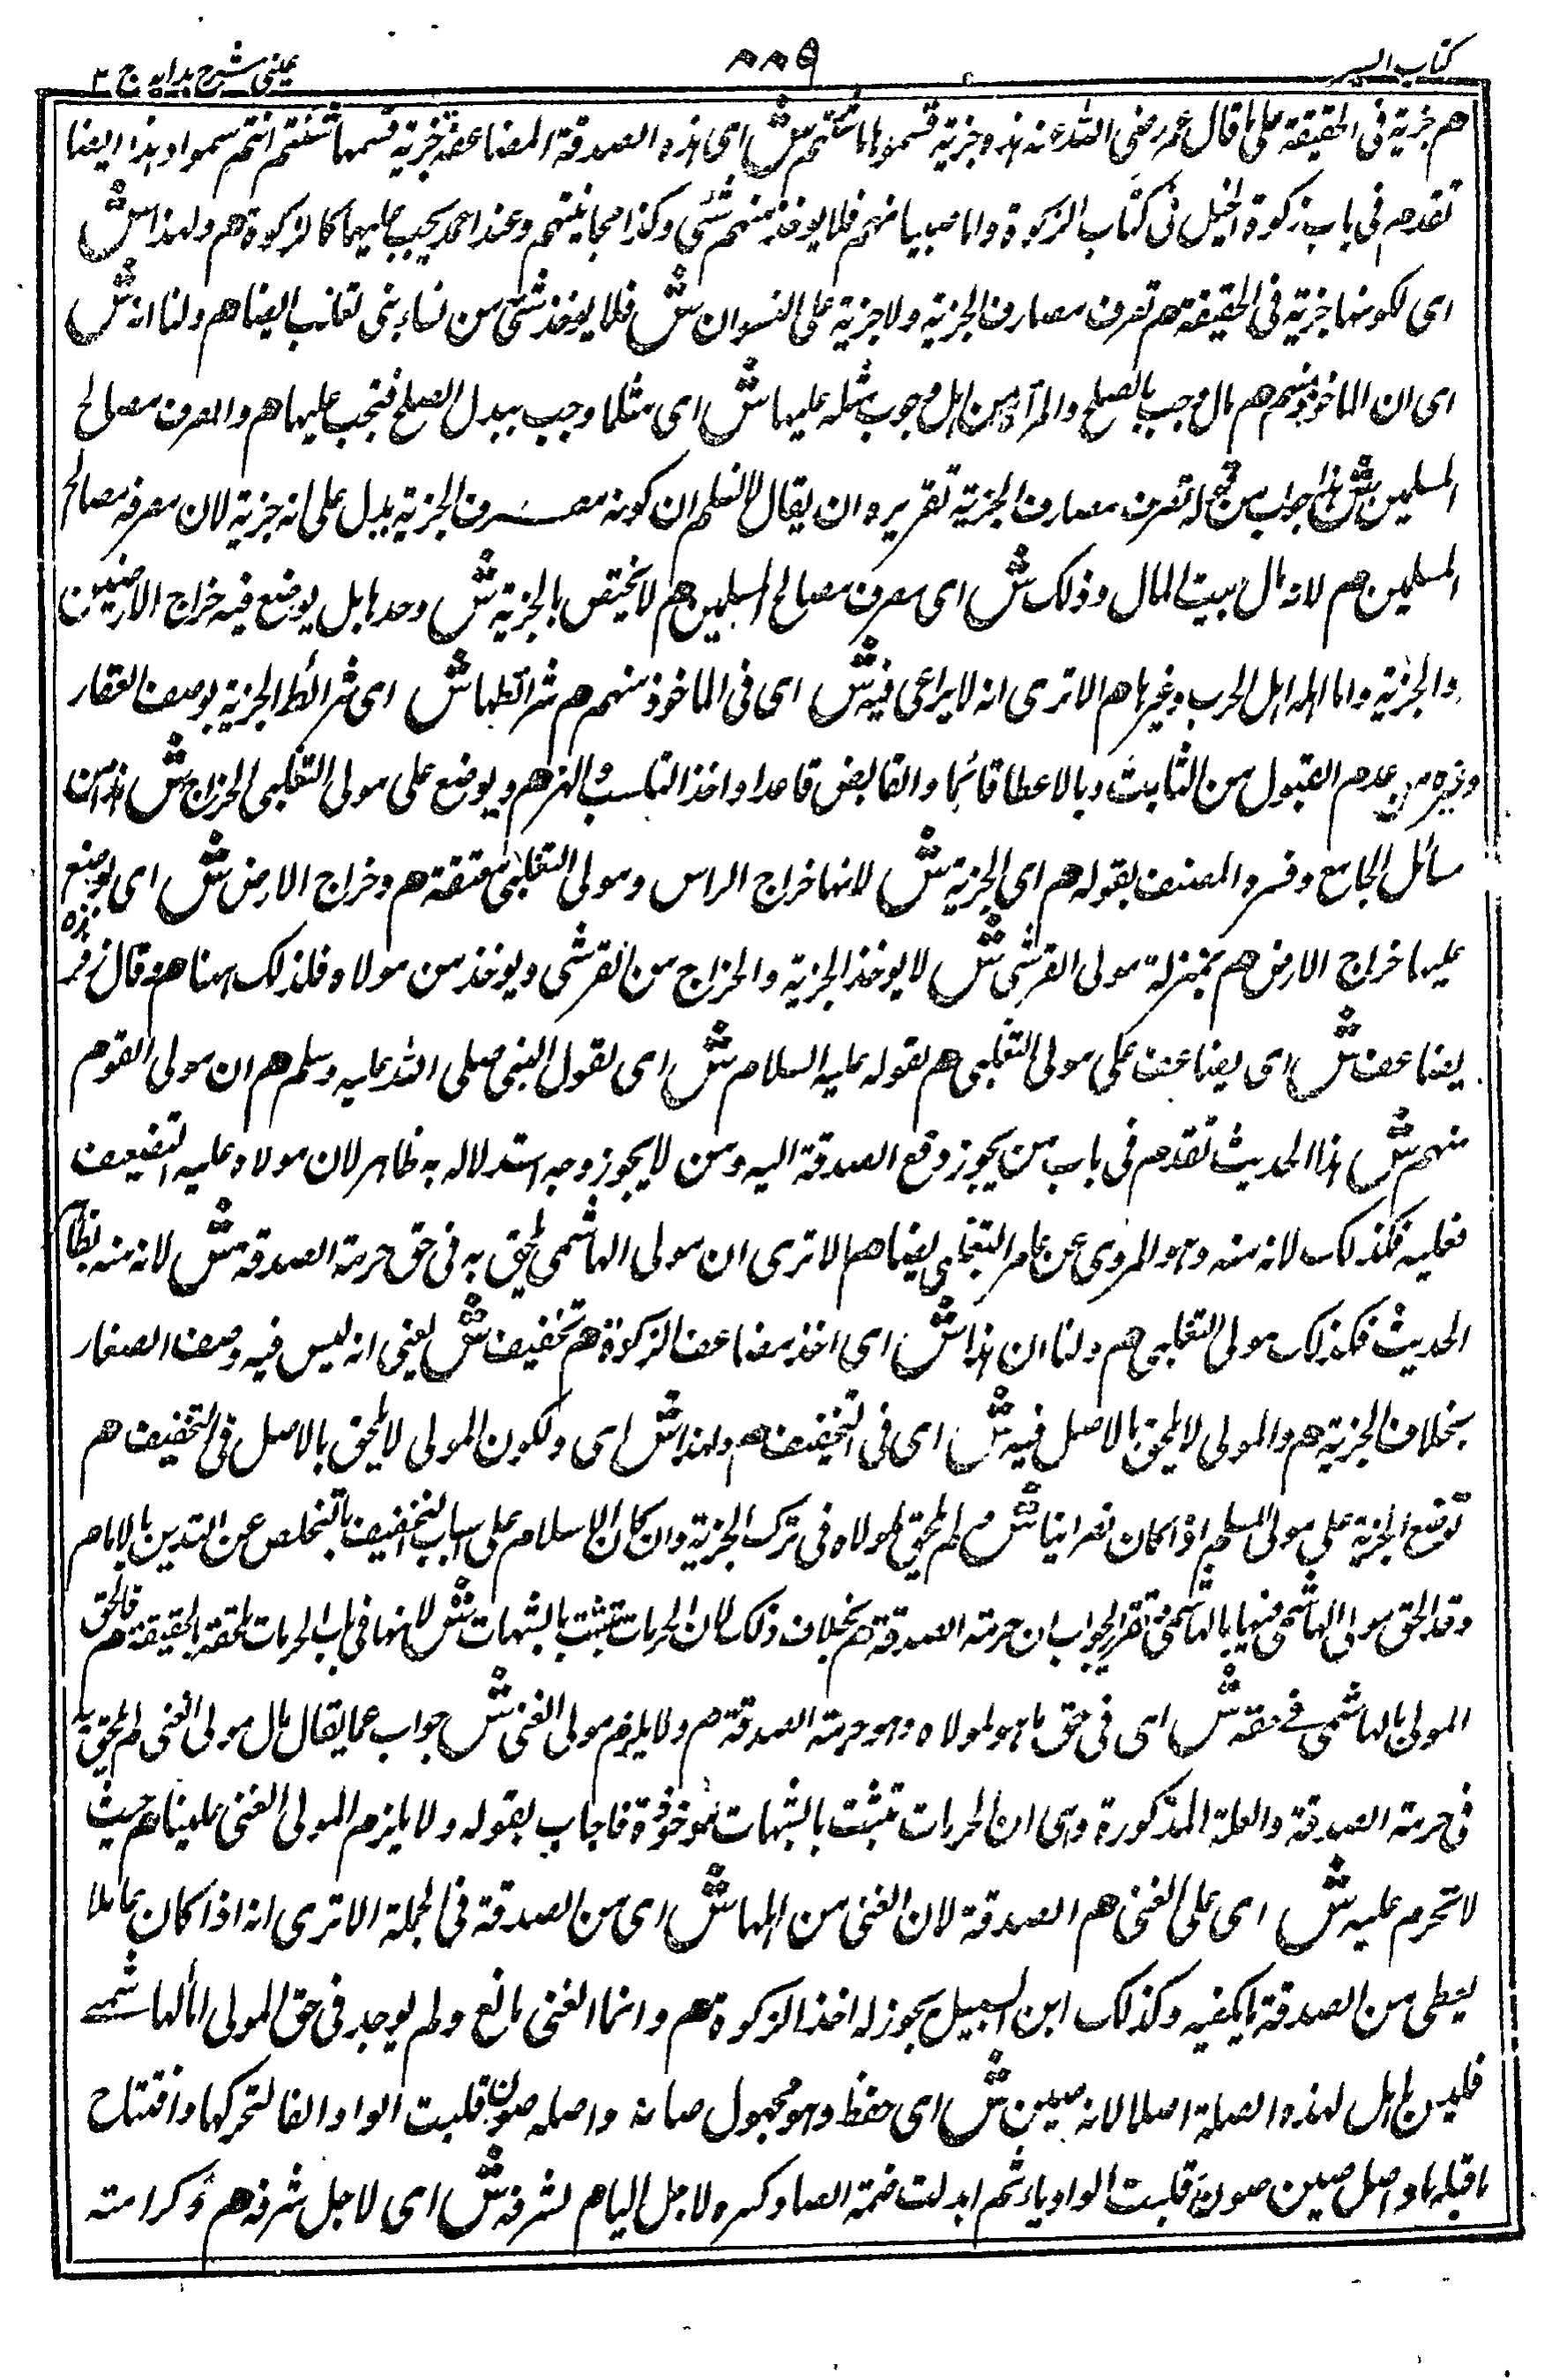 كتاب السير
٨٨٩
عینی شرح ہدایہ ج ٢
هم جزية فى الحقيقة على ما قال عمر رضى الله عنه هذه جزية فسموها ما شئتم ش اى هذه الصدقة المضاعفة جزية فسمها شئتم انتم سموا وهذا ايضا
تقدم فى باب زكوة الخيل فى كتاب الزكوة واما صبيانهم فلا يوخذ منهم شئى وكذا مجانينهم وعند احمد يجب عليهما كالزكوة هم ولهذا ش
اى لكونها جزية فى الحقيقة هم تصرف مصارف الجزية ولا جزية على النسوان ش فلا يوخذ شئى من نساء بنى تغلب ايضا هم ولنا انه ش
اى ان الماخوذ منهم هم مال وجب بالصلح والمرأة من اهل وجوب مثله عليها ش اى مثلما وجب ببدل الصلح فتجب عليها هم والمصرف مصالح
المسلمين ش هذا جواب من قوله تصرف مصارف الجزية تقريره ان يقال لا نسلم ان كونه مصرف الجزية يدل على انه جزية لان مصرفه مصالح
المسلمين هم لانه مال بيت المال وذلك ش اى مصرف مصالح المسلمين هم لا يختص بالجزية ش وحدها بل يوضع فيه خراج الارضين
والجزية واما اهداه اهل الحرب وغيرها هم الا ترى انه لا يراعى فيه ش اى فى الماخوذ منهم هم شرائطها ش اى شرائط الجزية بوصف الصغار
وغيره من عدم القبول من النائب وبالاعطا قائما والقابض قاعدا واخذ التلبيب والهز هم ويوضع على مولى التغلبى الخراج ش هذا من
مسائل الجامع وفسره المصنف بقوله هم اى الجزية ش لانها خراج الراس ومولى التغلبى معتقه هم وخراج الارض ش اى يوضع
عليها خراج الارض هم بمنزلة مولى القرشى ش لا يوخذ الجزية والخراج من القرشى ويوخذ من مولاه فلذلك ههنا هم وقال زفر
يضاعف ش اى يضاعف على مولى التغلبى هم لقوله عليه السلام ش اى لقول النبى صلى الله عليه وسلم هم ان مولى القوم
منهم ش هذا الحديث تقدم فى باب من يجوز دفع الصدقة اليه ومن لا يجوز وجه استدلاله به ظاهر لان مولاه عليه التضعيف
فعليه فكذلك لانه منه وهو المروى عن عامر الشعبى ايضا هم الا ترى ان مولى الهاشمى لحق به فى حق حرمة الصدقة ش لانه منه بظاهر
الحديث فكذلك مولى التغلبى هم ولنا ان هذا ش اى اخذ مضاعف الزكوة هم تخفيف ش يعنى انه ليس فيه وصف الصغار
بخلاف الجزية هم والمولى لا يلحق بالاصل فيه ش اى فى التخفيف هم ولهذا ش اى ولكون المولى لا يلحق بالاصل فى التخفيف هم
توضع الجزية على مولى المسلم اذا كان نصرانيا ش م لم يلحق لمولاه فى ترك الجزية وان كان الاسلام على اسباب التخفيف بالتخلص عن التدين
وقد الحق مولى الهاشمى فيها بالهاشمى تقرير الجواب ان حرمة الصدقة هم بخلاف ذلك لان الحرمات تثبت بالشبهات ش لانها فى باب الحرمات ملحقة بالحقيقة هم فالحق
المولى بالهاشمى فى حقه ش اى فى حق ما هو لمولاه وهو حرمة الصدقة هم ولا يلزم مولى الغنى ش جواب عما يقال بال مولى الغنى لم يلحق به
فى حرمة الصدقة والعلة المذكورة وهى ان الحرمات تثبت بالشبهات موجودة فاجاب بقوله ولا يلزم المولى الغنى علينا هم حيث
لا تحرم عليه ش اى على الغنى هم الصدقة لان الغنى من اهلها ش اى من الصدقة فى الجملة الا ترى انه اذا كان عاملا
يعطى من الصدقة ما يكفيه وكذلك ابن السبيل يجوز له اخذ الزكوة هم وانما الغنى مانع ولم يوجد فى حق المولى اما الهاشمى
فليس باهل لهذه الصلة اصلا لانه صين ش اى حفظ وهو مجهول صانه واصله صون قلبت الواو الفا لتحركها وافتتاح
ما قبلها واصل صين صون قلبت الواو ياء ثم ابدلت ضمة الصاد كسره لاجل اليا هم لشرفه ش اى لاجل شرفه هم وكرامته